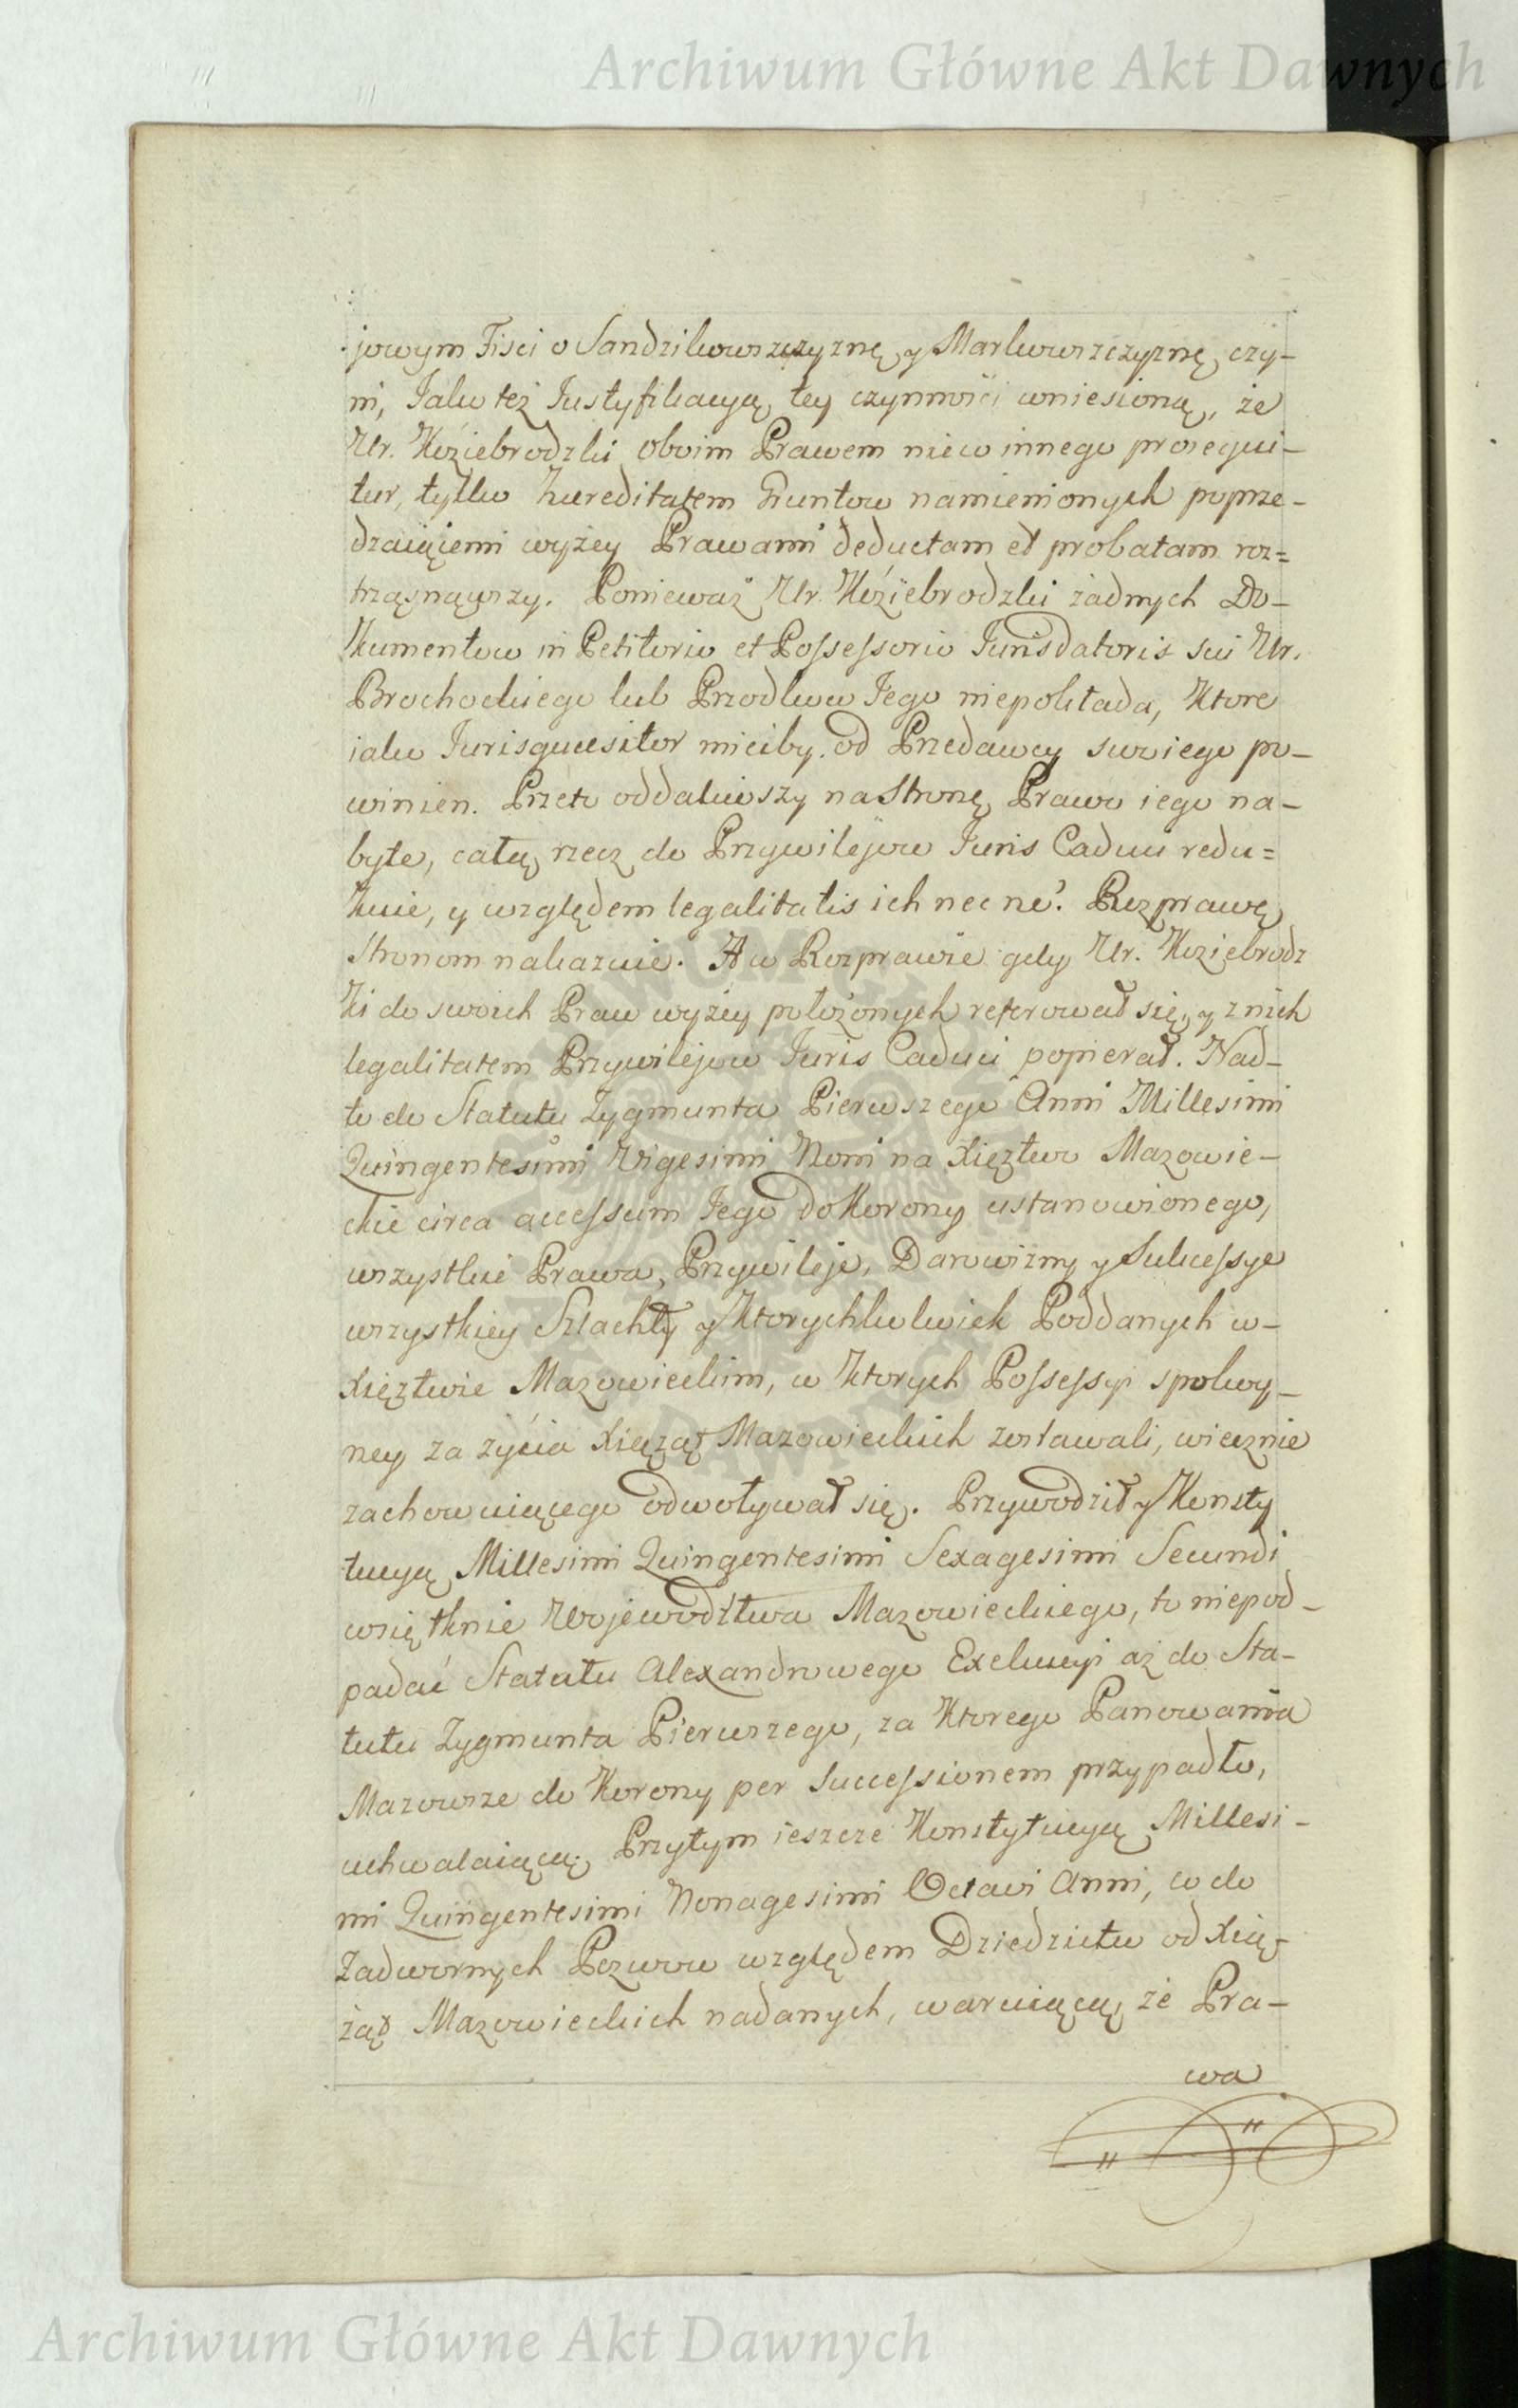 Archiwum Główne Akt Dawnych
jowym Fisci o Sandzikowszczyznę y Markowszczyznę czy-
ni, Jako też Justyfikacyą tey czynności wniesioną, że
Ur. Koziebrodzki oboim Prawem nieco innego prosequi-
tur, tylko haereditatem Gruntow namienionych poprze-
dzaiącemi wyżey Prawami deductam et probatam roz=
trząsnąwszy. Ponieważ Ur. Koziebrodzki żadnych Do-
kumentow in Petitorio et Possessorio Jurisdatoris sui Ur.
Brochockiego lub Przodkow Jego niepokłada, ktore
iako Jurisquaesitor miećby od Przedawcy swoiego po-
winien. Przeto oddaliwszy na Stronę Prawo iego na-
byte, całą rzecz do Przywilejow Juris Caduci redu=
kuie, y względem legalitatis ich nec ne? Rozprawę
Stronom nakazuie. A w Rozprawie gdy Ur. Koziebrodz
ki do swoich Praw wyżey położonych referował się, y z nich
legalitatem Przywilejow Juris Caduci popierał. Nad-
to do Statutu Zygmunta Pierwszego Anni Millesimi
Quingentesimi Vigesimi Noni na Xięztwo Mazowie-
ckie circa accessum Jego do Korony ustanowionego,
wszystkie Prawa, Przywileje, Darowizny y Sukcessye
wszystkiey Szlachty y ktorychkolwiek Poddanych w-
Xięztwie Mazowieckim, w ktorych Possessyi spokoy-
ney za życia Xiążąt Mazowieckich zostawali, wiecznie
zachowuiącego odwoływał się. Przywodził y Konsty
tucyą Millesimi Quingentesimi Sexagesimi Secundi
wsiętknie Wojewodztwa Mazowieckiego, to niepod-
padać Statutu Alexandrowego Exekucyi aż do Sta-
tutu Zygmunta Pierwszego, za ktorego Panowania
Mazowsze do Korony per Successionem przypadło,
uchwalaiącą. Przytym ieszcze Konstytucyą Millesi-
mi Quingentesimi Nonagesimi Octavi Anni, co do
Zadwornych Pozwow względem Dziedzictw od Xią-
żąt Mazowieckich nadanych, waruiącą, że Pra-
wa
Archiwum Główne Akt Dawnych